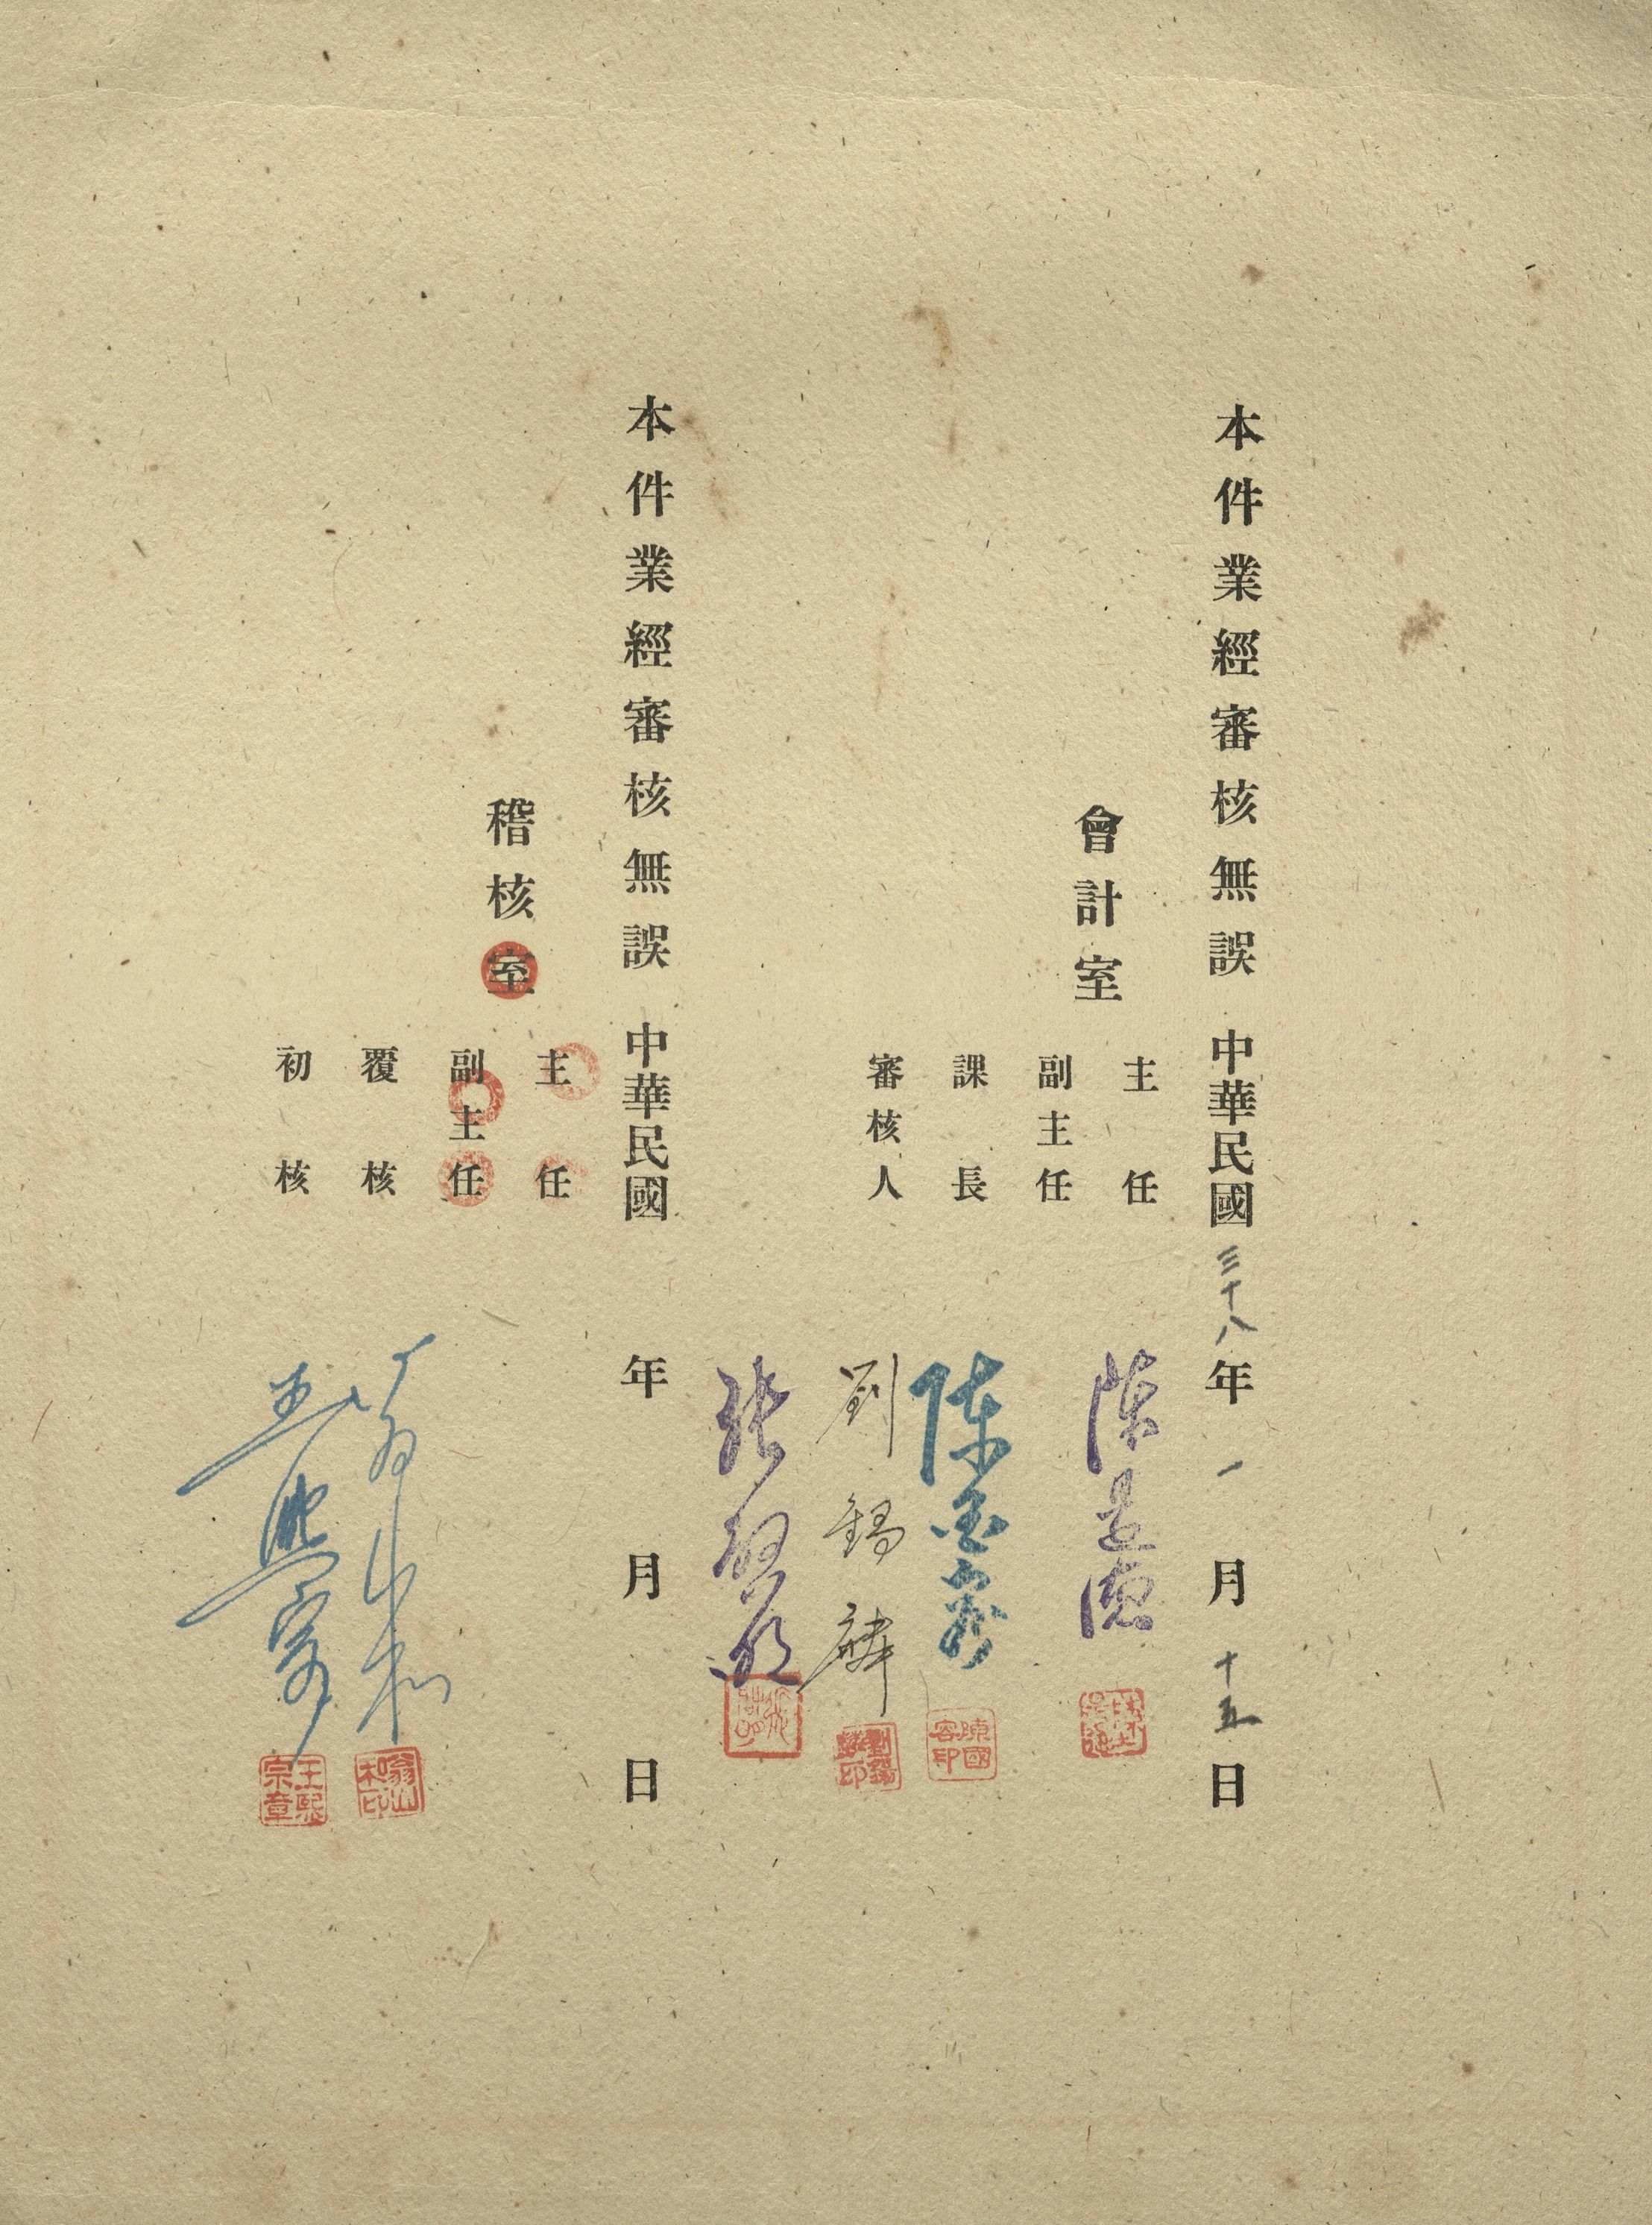 本件業經審核無誤 中華民國三十八年一月十五日
會計室
主任 陳
副主任 陳國容
陳國容印
課長 劉錫麟
劉錫麟印
審核人 張
本件業經審核無誤 中華民國 年 月 日
稽核室
主任
副主任
覆核 翁山和
翁山和印
初核 王熙宗
王熙宗章